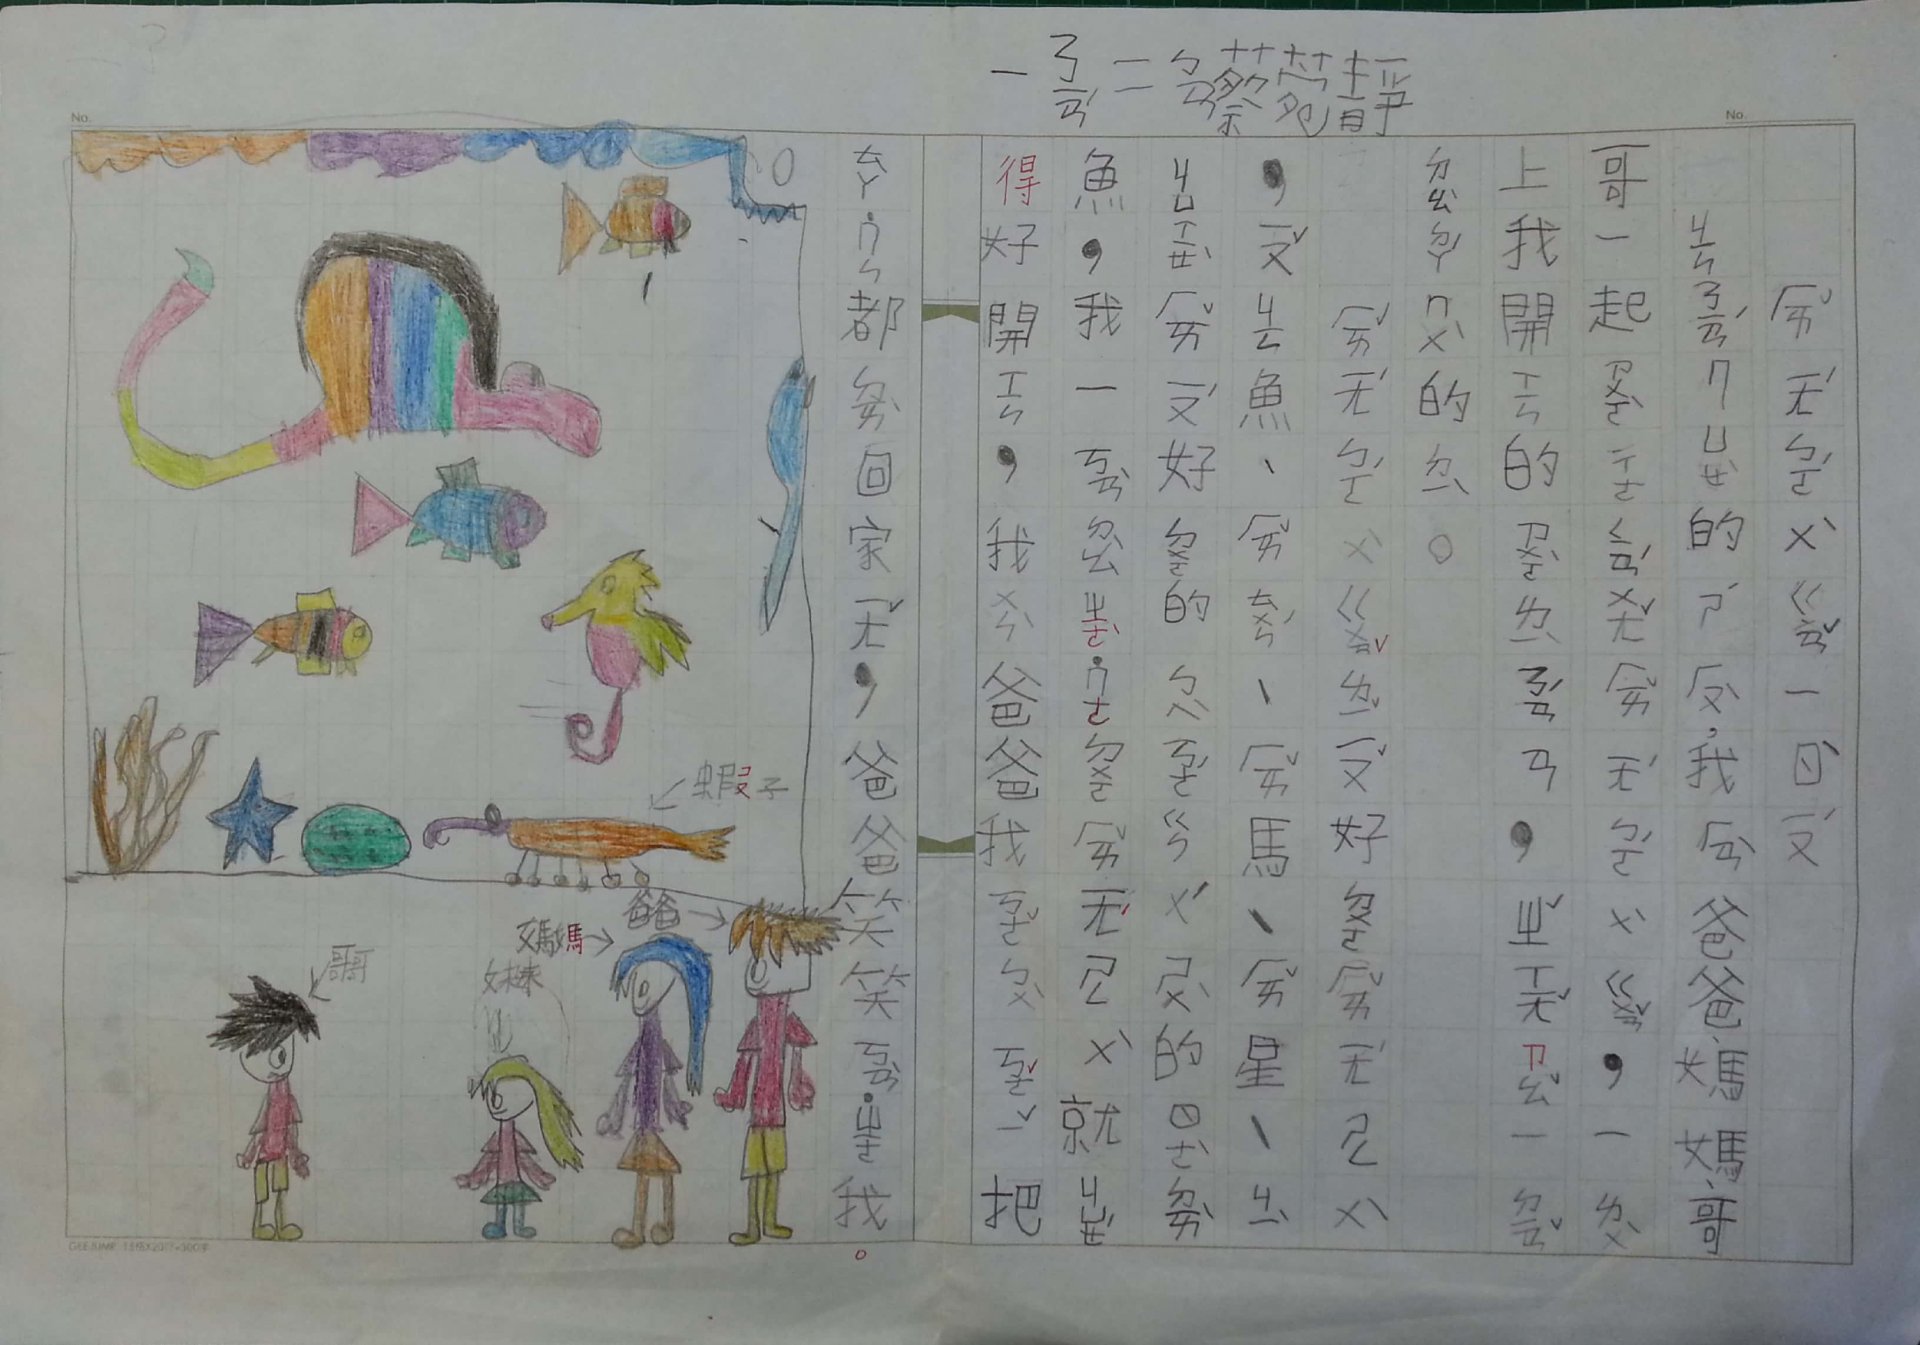 一ㄋㄧㄢˊ二ㄅㄢ蔡靜
ㄏㄞˇㄧㄤˊㄅㄛˊㄨˋㄍㄨㄢˇ一日ㄧㄡˊ
ㄐㄧㄣㄋㄧㄢˊ的我ㄏㄢˋ爸爸、媽媽、哥
哥一起ㄑㄧㄢˊㄨㄤˇㄏㄞˇㄧㄤˊㄅㄛˊㄨˋㄍㄨㄢˇ，一ㄌㄨˋ
上我開ㄒㄧㄣ的，ㄓˇㄒㄧㄤˇㄗㄠˇ一ㄉㄧㄢˇ
ㄉㄠˋㄉㄚˊㄇㄨˋ的ㄉㄧˋ。
ㄏㄞˇㄧㄤˊㄅㄛˊㄨˋㄍㄨㄢˇㄌㄧˇㄧㄡˇ好ㄉㄨㄛㄏㄞˇㄧㄤˊㄕㄥㄨˋ
，ㄧㄡˇㄐㄧㄥ魚、ㄏㄞˇㄊㄨㄣˊ、ㄏㄞˇ馬、ㄏㄞˇ星、ㄐㄧˋ
ㄐㄩㄒㄧㄝˋㄏㄞˊㄧㄡˇ好ㄉㄨㄛ的ㄅㄨˋ的
魚，我一ㄎㄢˋㄉㄠˋㄓㄜˋ˙ㄇㄜㄉㄨㄛㄏㄞˇㄧㄤˊㄕㄥㄨˋ就ㄐㄩㄝˊ
得好開ㄒㄧㄣ，我ㄨㄣˋ爸爸我ㄎㄜˇㄅㄨˋㄎㄜˇㄧˇ把
ㄊㄚ˙ㄇㄣ都ㄉㄞˋ回家ㄧㄤˇ，爸爸笑笑ㄎㄢˋ˙ㄓㄜ我。
蝦子
爸爸
媽媽
妹妹
哥哥
No.
No.